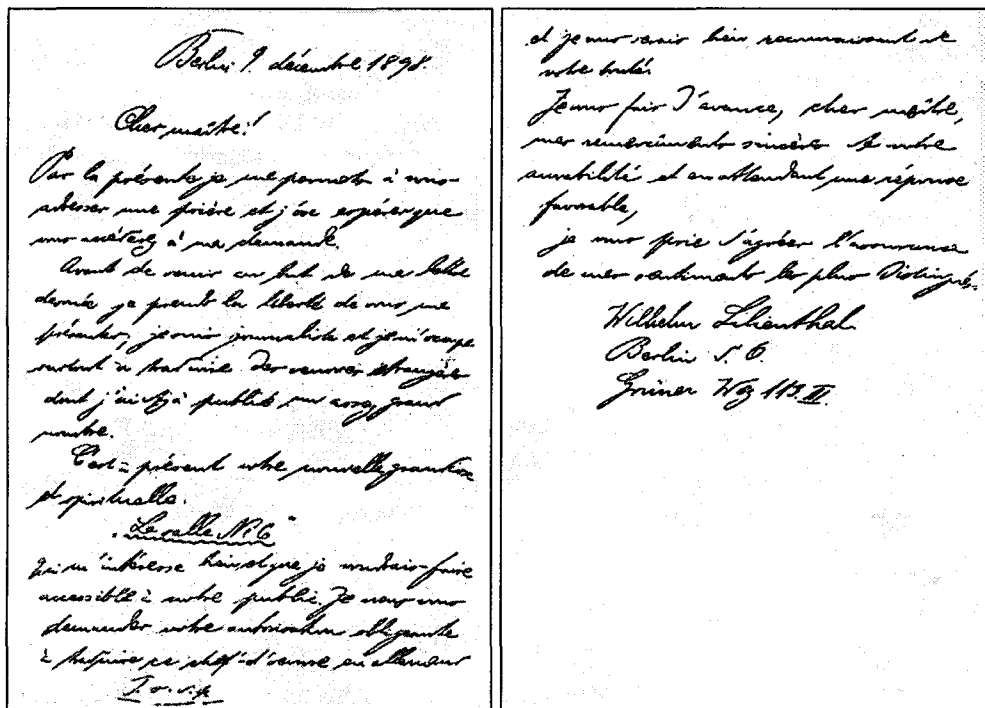 Berlin 9. décembre 1898.
Cher maître!
Par la présente je me permets à vous
adresser une prière et j'ose espérer que
vous à ma demande.
Avant de venir au but de ma lettre
je prends la liberté de vous me
présenter, je suis journaliste et je m'occupe
surtout à traduire des oeuvres étrangères
dont j'ai déjà publié un assez grand
nombre.
C'est à présent votre nouvelle grandiose
et spirituelle.
„La salle No 6"
qui m'intéresse bien et que je voudrais faire
accessible à notre public. Je veux vous
demander votre autorisation obligeante
à traduire ce chef-d'oeuvre en allemand
T. s. v. p.
et je vous serais bien reconnaissant de
votre bonté.
Je vous fais d'avance, cher maître,
mes remerciments sincères de votre
amabilité et en attendant une réponse
favorable,
je vous prie d'agréer l'assurance
de mes sentiments les plus distingués.
Wilhelm Lilienthal.
Berlin S. O.
Grüner Weg 113. III.